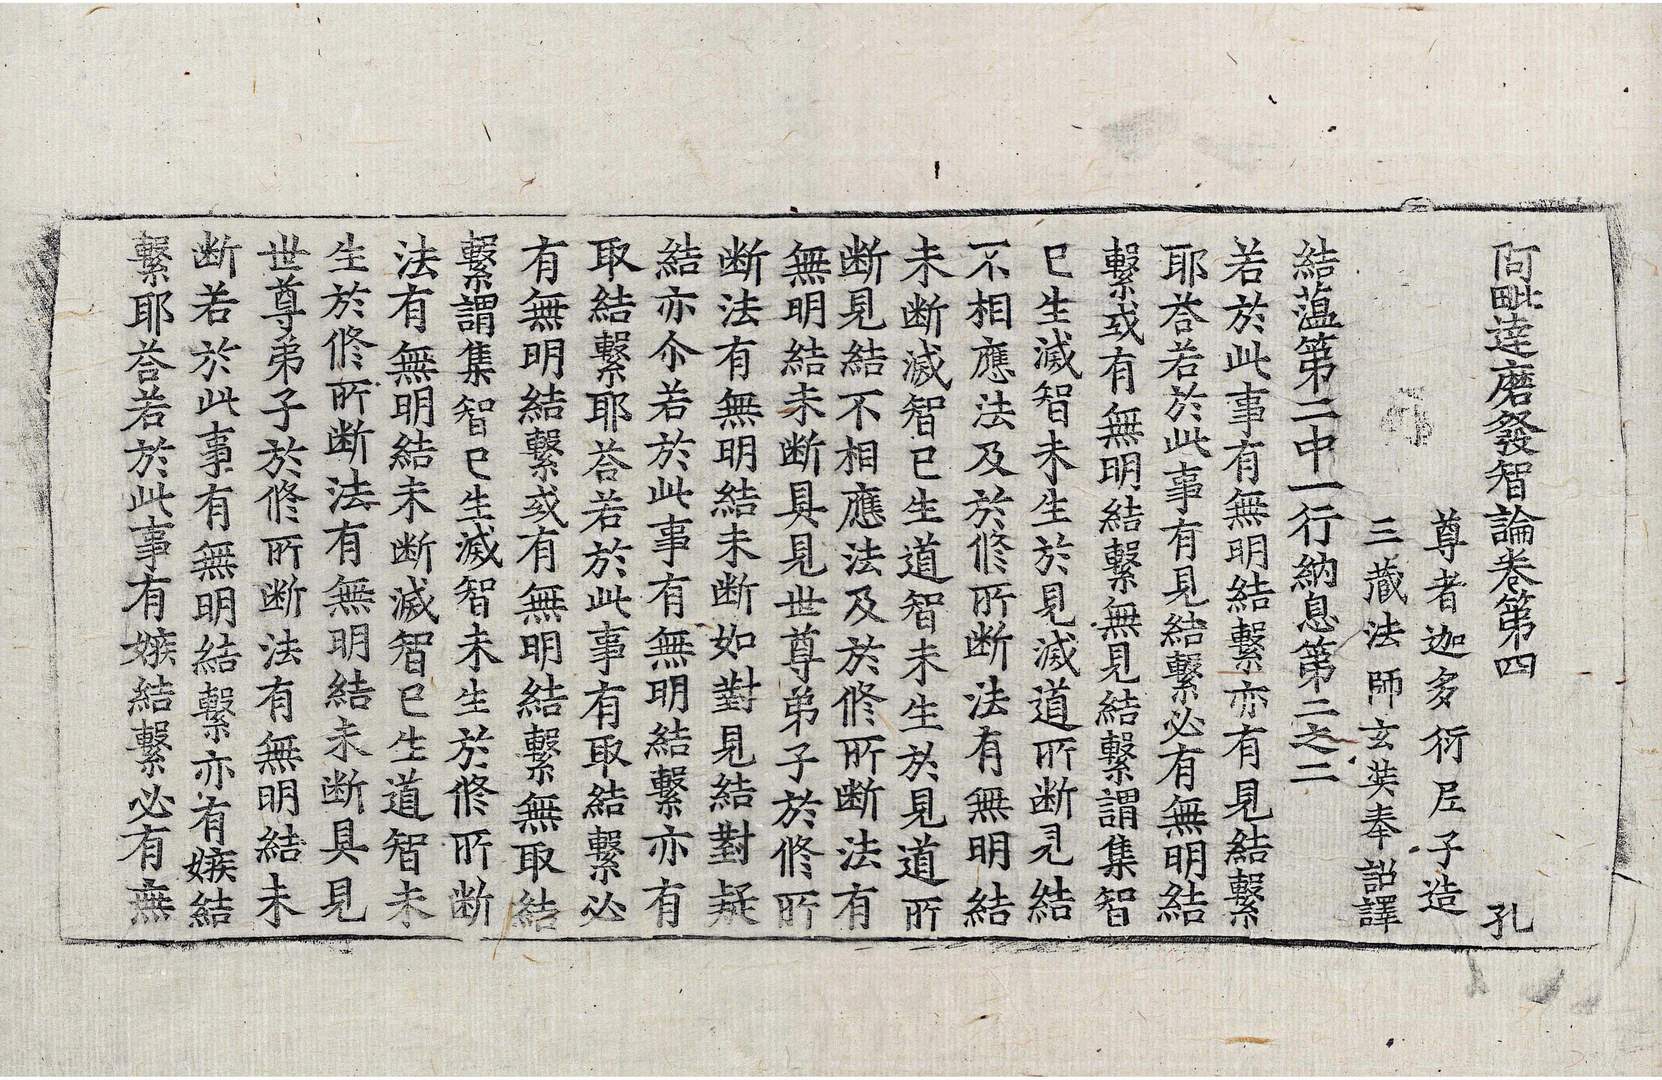 阿毗達磨發智論卷第四 孔
尊者迦多衍尼子造
三藏法師玄奘奉詔譯
結藴第二中一行納息第二之二
若於此事有無明結繫亦有見結繫
耶荅若於此事有見結繫必有無明結
繫或有無明結繫無見結繫謂集智
已生滅智未生於見滅道所斷見結
不相應法及於修所斷法有無明結
未斷滅智已生道智未生於見道所
斷見結不相應法及於修所斷法有
無明結未斷具見世尊弟子於修所
斷法有無明結未斷如對見結對疑
結亦尒若於此事有無明結繫亦有
取結繫耶荅若於此事有取結繫必
有無明結繫或有無明結繫無取結
繫謂集智已生滅智未生於修所斷
法有無明結未斷滅智已生道智未
生於修所斷法有無明結未斷具見
世尊弟子於修所斷法有無明結未
斷若於此事有無明結繫亦有嫉結
繫耶荅若於此事有嫉結繫必有無